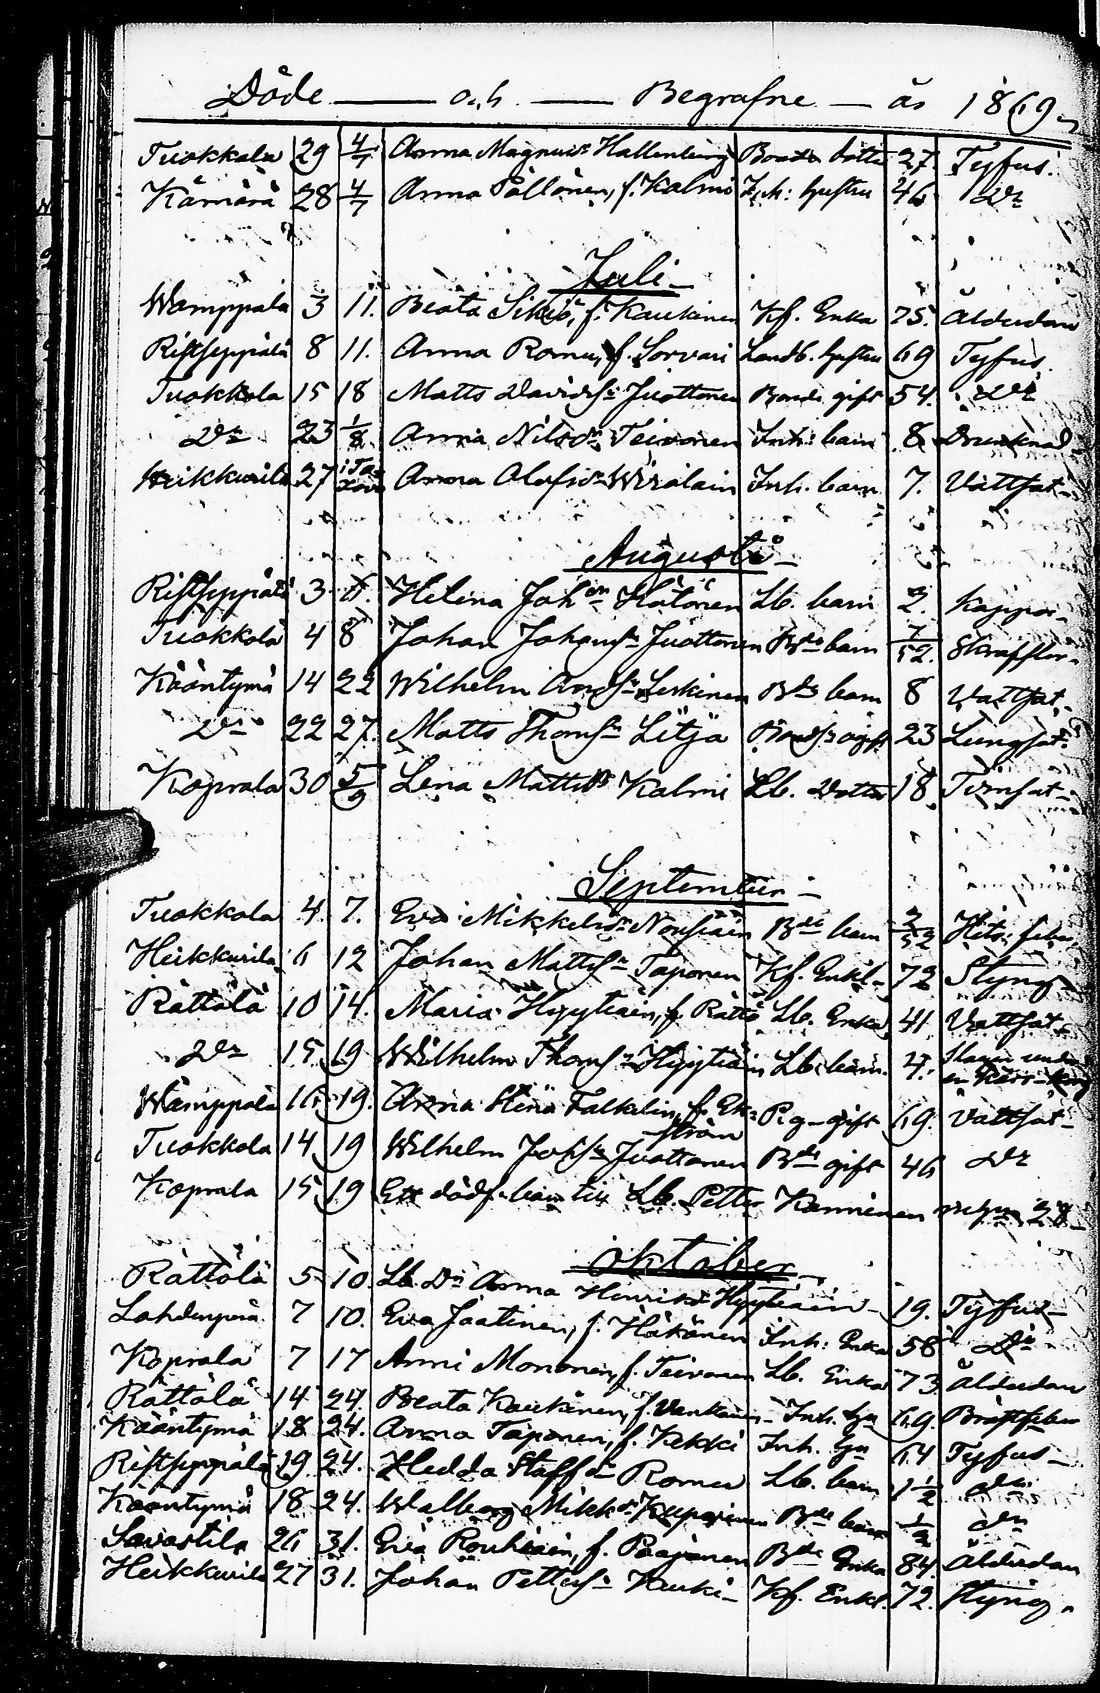 Döde — och — Begrafne — år 1869.
Tuokkola 29 4/7 Anna Magnusdr Hallenberg Bonde dotter 27. Tyfus.
Kämärä 28 4/7 Anna Pällönen, f. Kalmi Inh: hustru 46 Do
Juli
Wamppala 3 11. Beata Sikiö, f. Kaukinen Kf. Enka 75. Ålderdom
Ristseppälä 8 11. Anna Roma, f. Sorvari Landb. hustru 69 Tyfus.
Tuokkola 15 18 Matts Davidsn Juottonen Bonde gift 54. Do
Do 23 1/8. Anna Nilsdr Teivonen Inh: barn 8 Drunknad
Heikkurila 27 Anna Olofsdr Wirolain Inh. barn 7. Vattsot
Augusti
Ristseppälä 3 8. Helena Johdr Hätönen Lb. barn 2. Koppor
Tuokkola 4 8 Johan Johanssn Juottonen Bde barn 7/52. Skrofler
Kääntymä 14 22 Wilhelm Andsn Leskinen Bde barn 8 Vattsot
Do 22 27. Matts Thomsn Litjä 23 Lungsot
Koprala 30 5/9 Lena Mattsdr Kalmi Lb. Dotter 18.
September
Tuokkola 4. 7. Eva Mikkelsdr Nousiain Bde barn 2/52
Heikkurila 6 12 Johan Mattssn Taponen Kf. Enkl. 72 Styng
Rättölä 10 14. Maria Hyytiäin, f. Rättö Lb. Enka 41 Vattsot
Do 15. 19 Wilhelm Thomssn Hyytiäin Lb. barn. 4. Slagen under en
Wamppala 16. 19. Anna Stina Falkelin, f. Ek= gift 69. Vattsot
ström
Tuokkola 14. 19 Wilhelm Johssn Juottonen Bde gift 46 Do
Koprala 15 19 Ett dödf. barn till Lb. Petter Kanninen 28
Oktober
Rättölä 5 10. Lb. Dr Anna Henriksdr Hyytiäin 19. Tyfus
Lahdenperä 7 10. Eva Jaatinen, f. Häkönen Inh: Enka 58 Do
Koprala 7 17 Anni Mononen, f. Teivonen Lb. Enka 73 Ålderdom
Rättölä 14 24. Beata Kaukinen, f. Inh. hu 69. Bröstfeber
Kääntymä 18 24. Anna Taponen, f. Kekki Inh. hu 64 Tyfus
Ristseppälä 19 24. Hedda Staffdr Roma Lb. barn 1 1/2 do
Kääntymä 18 24. Walborg Mikkdr Bde barn 1/2 do
Savastila 26 31. Eva Rouhiain, f. Paajanen Bde Enka 84. Ålderdom
Heikkurila 27 31. Johan Petterssn Kauki Kf. Enkl. 72. styng.